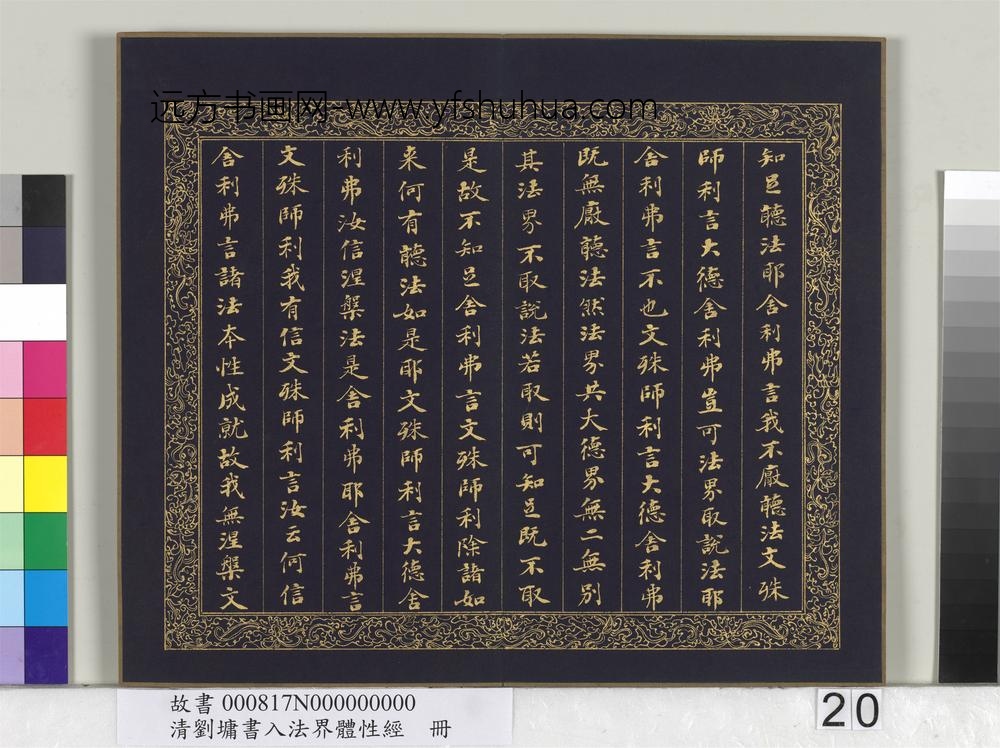 远方书画网-www.yfshuhua.com
知足聽法耶舍利弗言我不厭聽法文殊
師利言大德舍利弗豈可法界取說法耶
舍利弗言不也文殊師利言大德舍利弗
既無厭聽法然法界共大德界無二無別
其法界不取說法若取則可知足既不取
是故不知足舍利弗言文殊師利除諸如
来何有聽法如是耶文殊師利言大德舍
利弗汝信涅槃法是舍利弗耶舍利弗言
文殊師利我有信文殊師利言汝云何信
舍利弗言諸法本性成就故我無涅槃文
故書 000817N000000000
清劉墉書入法界體性經 冊
20